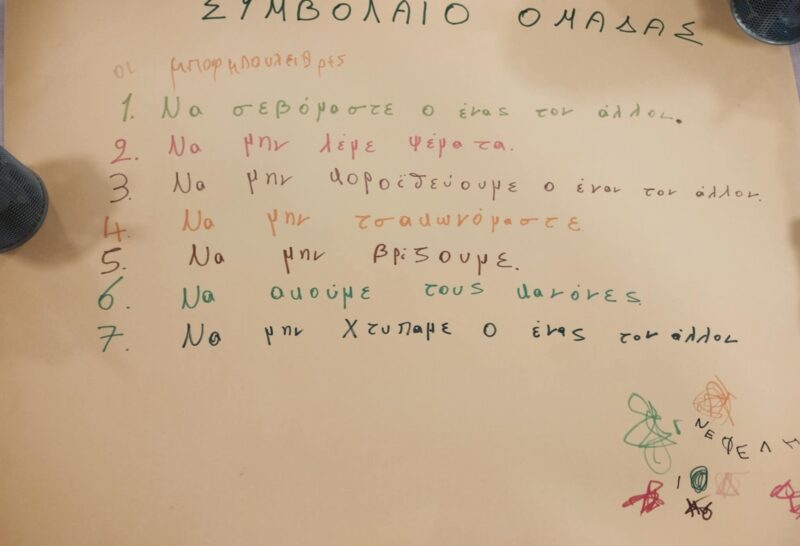 ΣΥΜΒΟΛΑΙΟ ΟΜΑΔΑΣ
οι
1. Να σεβόμαστε ο ένας τον άλλον.
2. Να μην λέμε ψέματα.
3. Να μην κοροϊδεύουμε ο έναν τον άλλον.
4. Να μην τσακωνόμαστε.
5. Να μην βρίζουμε.
6. Να ακούμε τους κανόνες
7. Να μην χτυπαμε ο ένας τον άλλον
ΝΕΦΕΛΗ